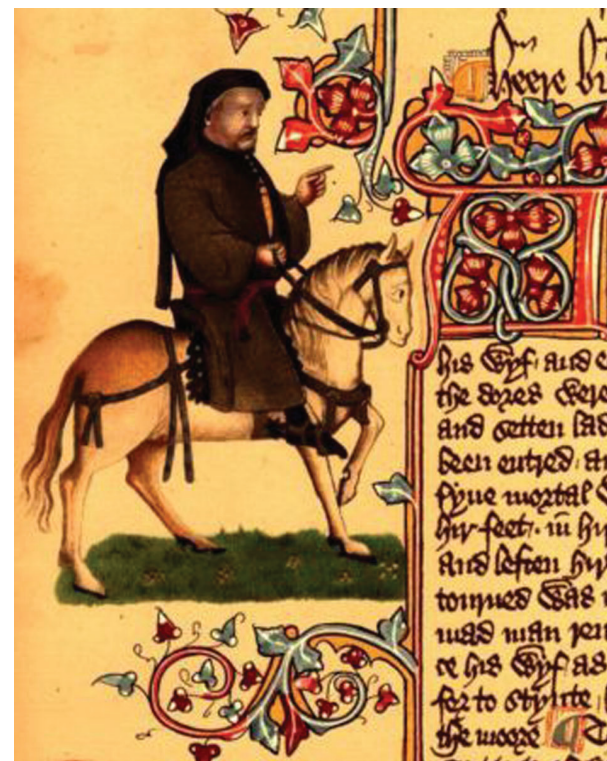 heere bi
his wyf and e
the dores were
and setten lad
been entred a
fyue mortal
hir feet in hi
and leften hir
tourned was
mad man ren
ce his wyf ad
for to stynte
the moore